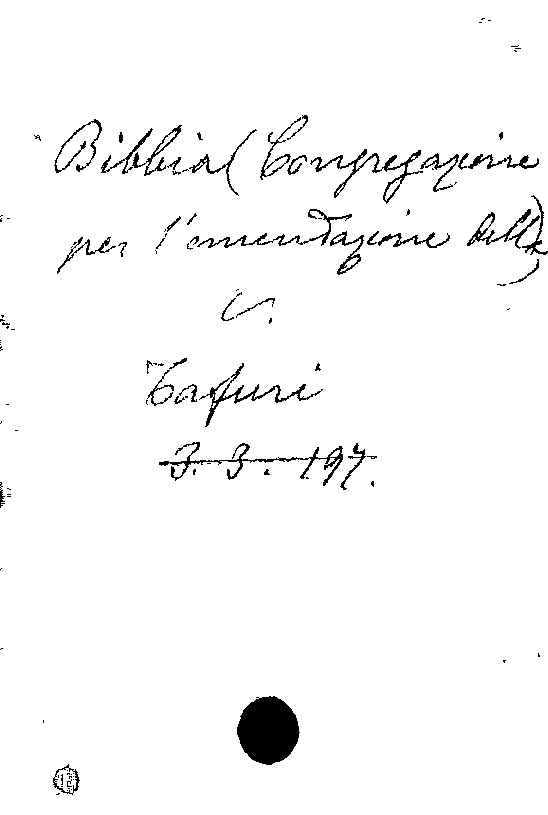 Bibbia (Congregazione
per l'emendazione della)
v.
Tafuri
3. 3. 197.